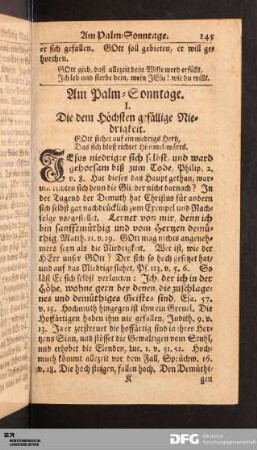 Am Palm-Sonntage. 145
er sich gefallen. GOtt soll gebieten, er will ge-
horchen.
GOtt gieb, daß allezeit dein Wille werd erfüllt,
Ich leb und sterbe dein, mein JEsu! wie du willt.
Am Palm-Sonntage.
I.
Die dem Höchsten gefällige Nie-
drigkeit.
GOtt siehet auf ein niedrigs Hertz,
Das sich bloß richtet Himmel-wärts.
JEsus niedrigte sich selbst, und ward
gehorsam biß zum Tode, Philip. 2,
v. 8. Hat dieses das Haupt gethan, war-
um solten sich denn die Glieder nicht darnach? In
der Tugend der Demuth hat Christus für andern
sich selbst gar nachdrücklich zum Exempel und Nach-
folge vorgestellet. Lernet von mir, denn ich
bin sanfftmüthig und vom Hertzen demü-
thig, Matth. 11. v. 29. GOtt mag nichts angeneh-
mers seyn als die Niedrigkeit. Wer ist, wie der
HErr unser GOtt? Der sich so hoch gesetzet hat,
und auf das Niedrige siehet, Ps. 113. v. 5. 6. So
läßt Er sich selbst verlauten: Ich, der ich in der
Höhe, wohne gern bey denen, die zuschlage-
nes und demüthiges Geistes sind, Esa. 57.
v. 15. Hochmuth hingegen ist ihm ein Greuel. Die
Hoffärtigen haben ihm nie gefallen, Judith. 9. v.
13. Ja er zerstreuet die hoffärtig sind in ihres Her-
tzens Sinn, und stösset die Gewaltigen vom Stuhl,
und erhebet die Elenden, Luc. 1. v. 51. 52. Hoch-
muth kömmt allezeit vor dem Fall, Sprüchw. 16.
v. 18. Die hoch steigen, fallen hoch. Den Demüthi-
K gen
DFG Deutsche
Forschungsgemeinschaft